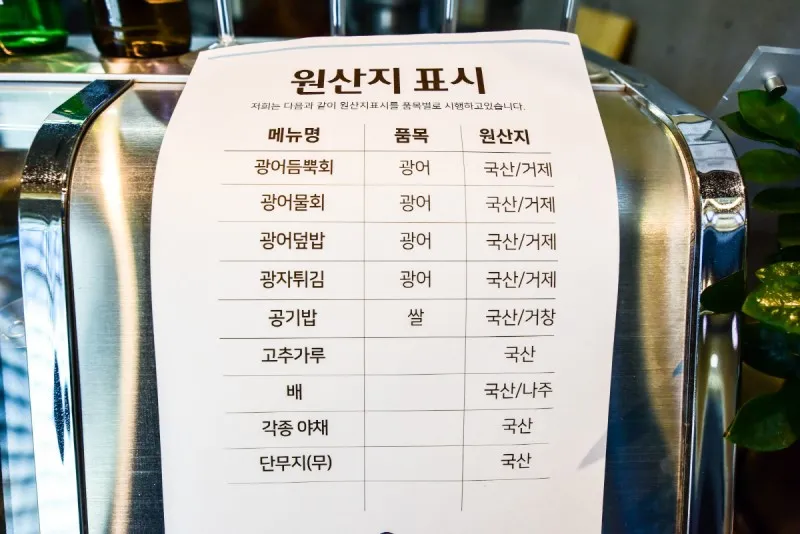 원산지 표시
저희는 다음과 같이 원산지표시를 품목별로 시행하고있습니다.
메뉴명 품목 원산지
광어듬뿍회 광어 국산/거제
광어물회 광어 국산/거제
광어덮밥 광어 국산/거제
광자튀김 광어 국산/거제
공기밥 쌀 국산/거창
고추가루 국산
배 국산/나주
각종 야채 국산
단무지(무) 국산